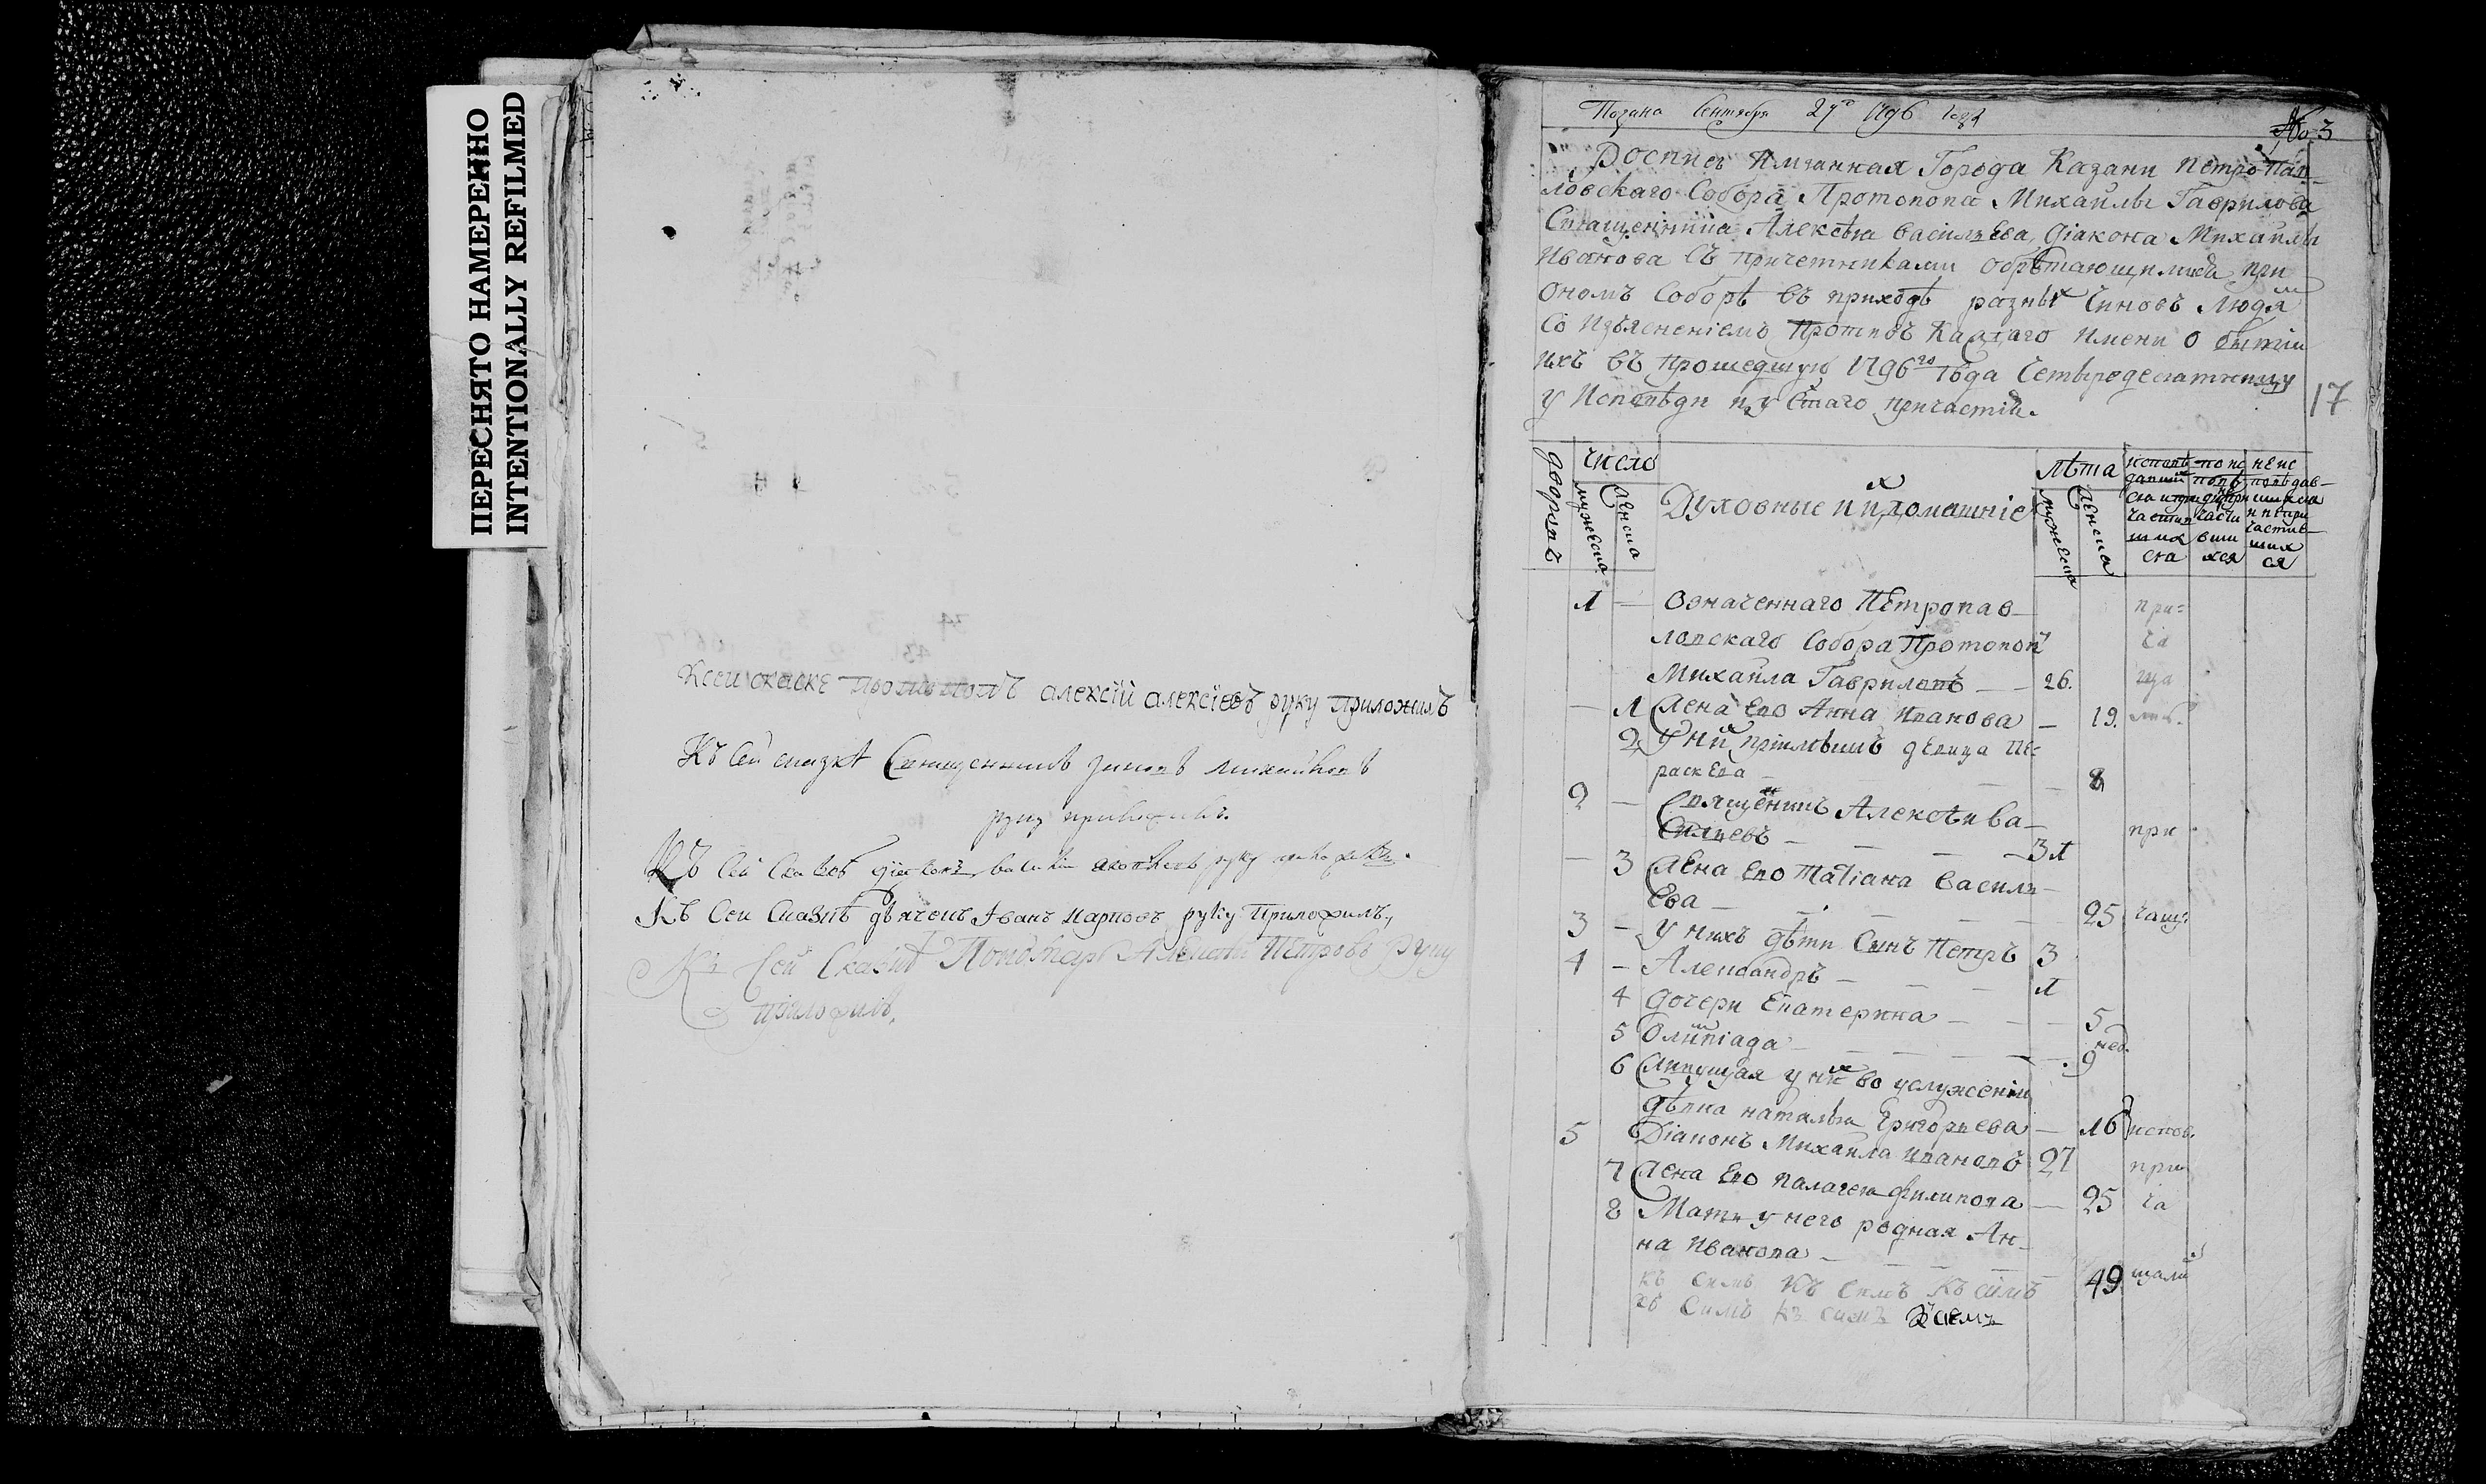 ПЕРЕСНЯТО НАМЕРЕННО
INTENTIONALLY REFILMED
Ксеи скаске протопопъ алексїй алексїевъ руку приложилъ
Къ сей сказкѣ священникъ михайловъ
руку приложилъ.
Къ сей сказкѣ діаконъ василей яковлевъ руку приложилъ.
Къ сеи сказкѣ дьячекъ Иванъ Карповъ руку приложилъ,
Къ сей сказкѣ Пономарь Алексѣй Петровъ руку
приложилъ.
Подана Сентября 27го 1796 года
№ 3
Роспись имянная Города Казани Петропав-
ловскаго Собора Протопопа Михаилы Гаврилова
Священника Алексѣя Василъева, діакона Михаилы
Иванова съ причетниками обрѣтающимися при
ономъ Соборѣ въ приходѣ разныхъ чиновъ людям
со изъясненіемъ противъ каждаго имени о бытіи
ихъ въ прошедшую 1796го года четыредесятницу
у исповѣди и у Стаго причастія.
17
дворовъ
число
мужеска
женска
Духовные и их домашніе
лѣта
мужеска
женска
исповѣ
давши
ся и при
частив
шихся
по ис
повѣ
не при
части
вши
хся
не ис
повѣдав-
шихся
и непри
частив-
шихся
1 — Означеннаго Петропав- при=
ловскаго Собора Протопопъ ча
Михаила Гавриловъ — 26. ща
— 1 Жена ево Анна Иванова — 19. лис.
2 У них пріимышъ дѣвица Па=
раскева — 8
2 — Священникъ Алексѣи Ва-
сильевъ — 31 при
— 3 Жена ево Татіана Василь-
ева — 25 чащ.
3 — У нихъ дѣти Сынъ Петръ 3
4 — Александръ — 1
4 дочери Екатерина — 5
5 Олимпіада — 9 нед.
6 Живущая у них во услуженіи
дѣвка наталья Григорьева — 16 испов.
5 Діаконъ Михаила Ивановъ 27 при
7 Жена ево Палагея Филипова — 25 ча
8 Мать у него родная Ан-
на Иванова — 49 щали
къ симъ къ симъ къ симъ
къ симъ къ симъ